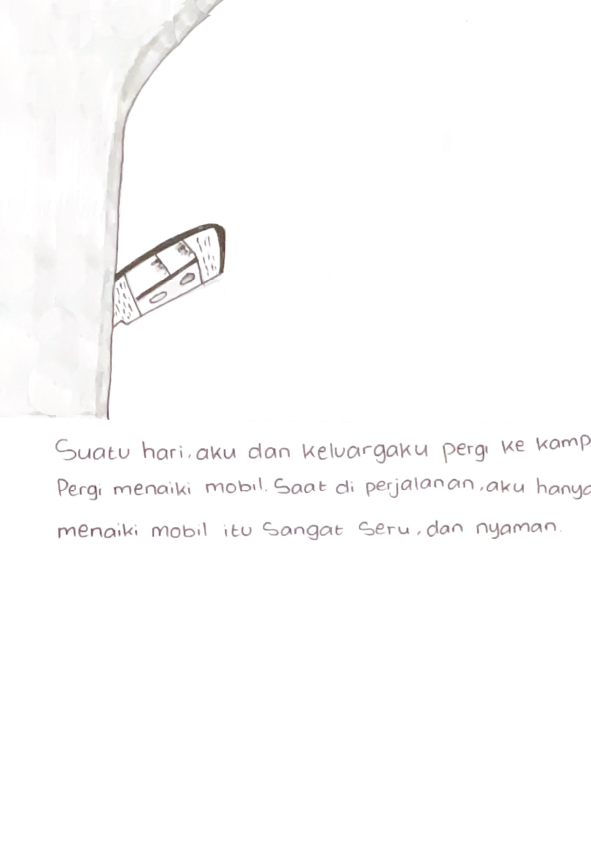 Suatu hari, aku dan keluargaku pergi ke kamp
Pergi menaiki mobil. Saat di perjalanan, aku hanya
menaiki mobil itu Sangat Seru, dan nyaman.